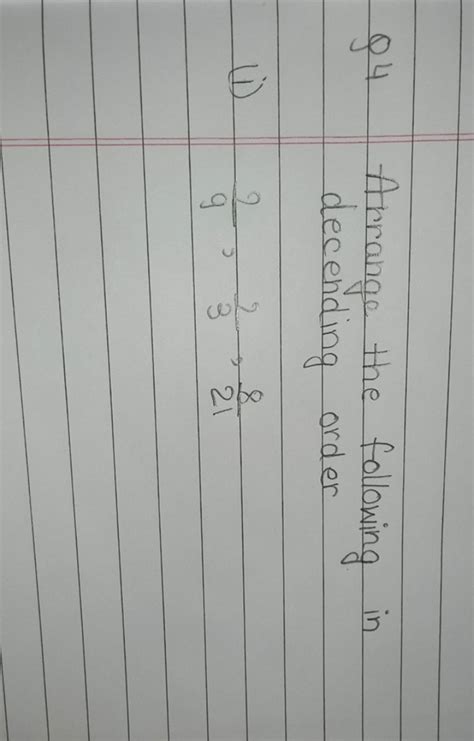 Q4 Arrange the following in
decending order
(i) 2/9 , 2/3 , 8/21